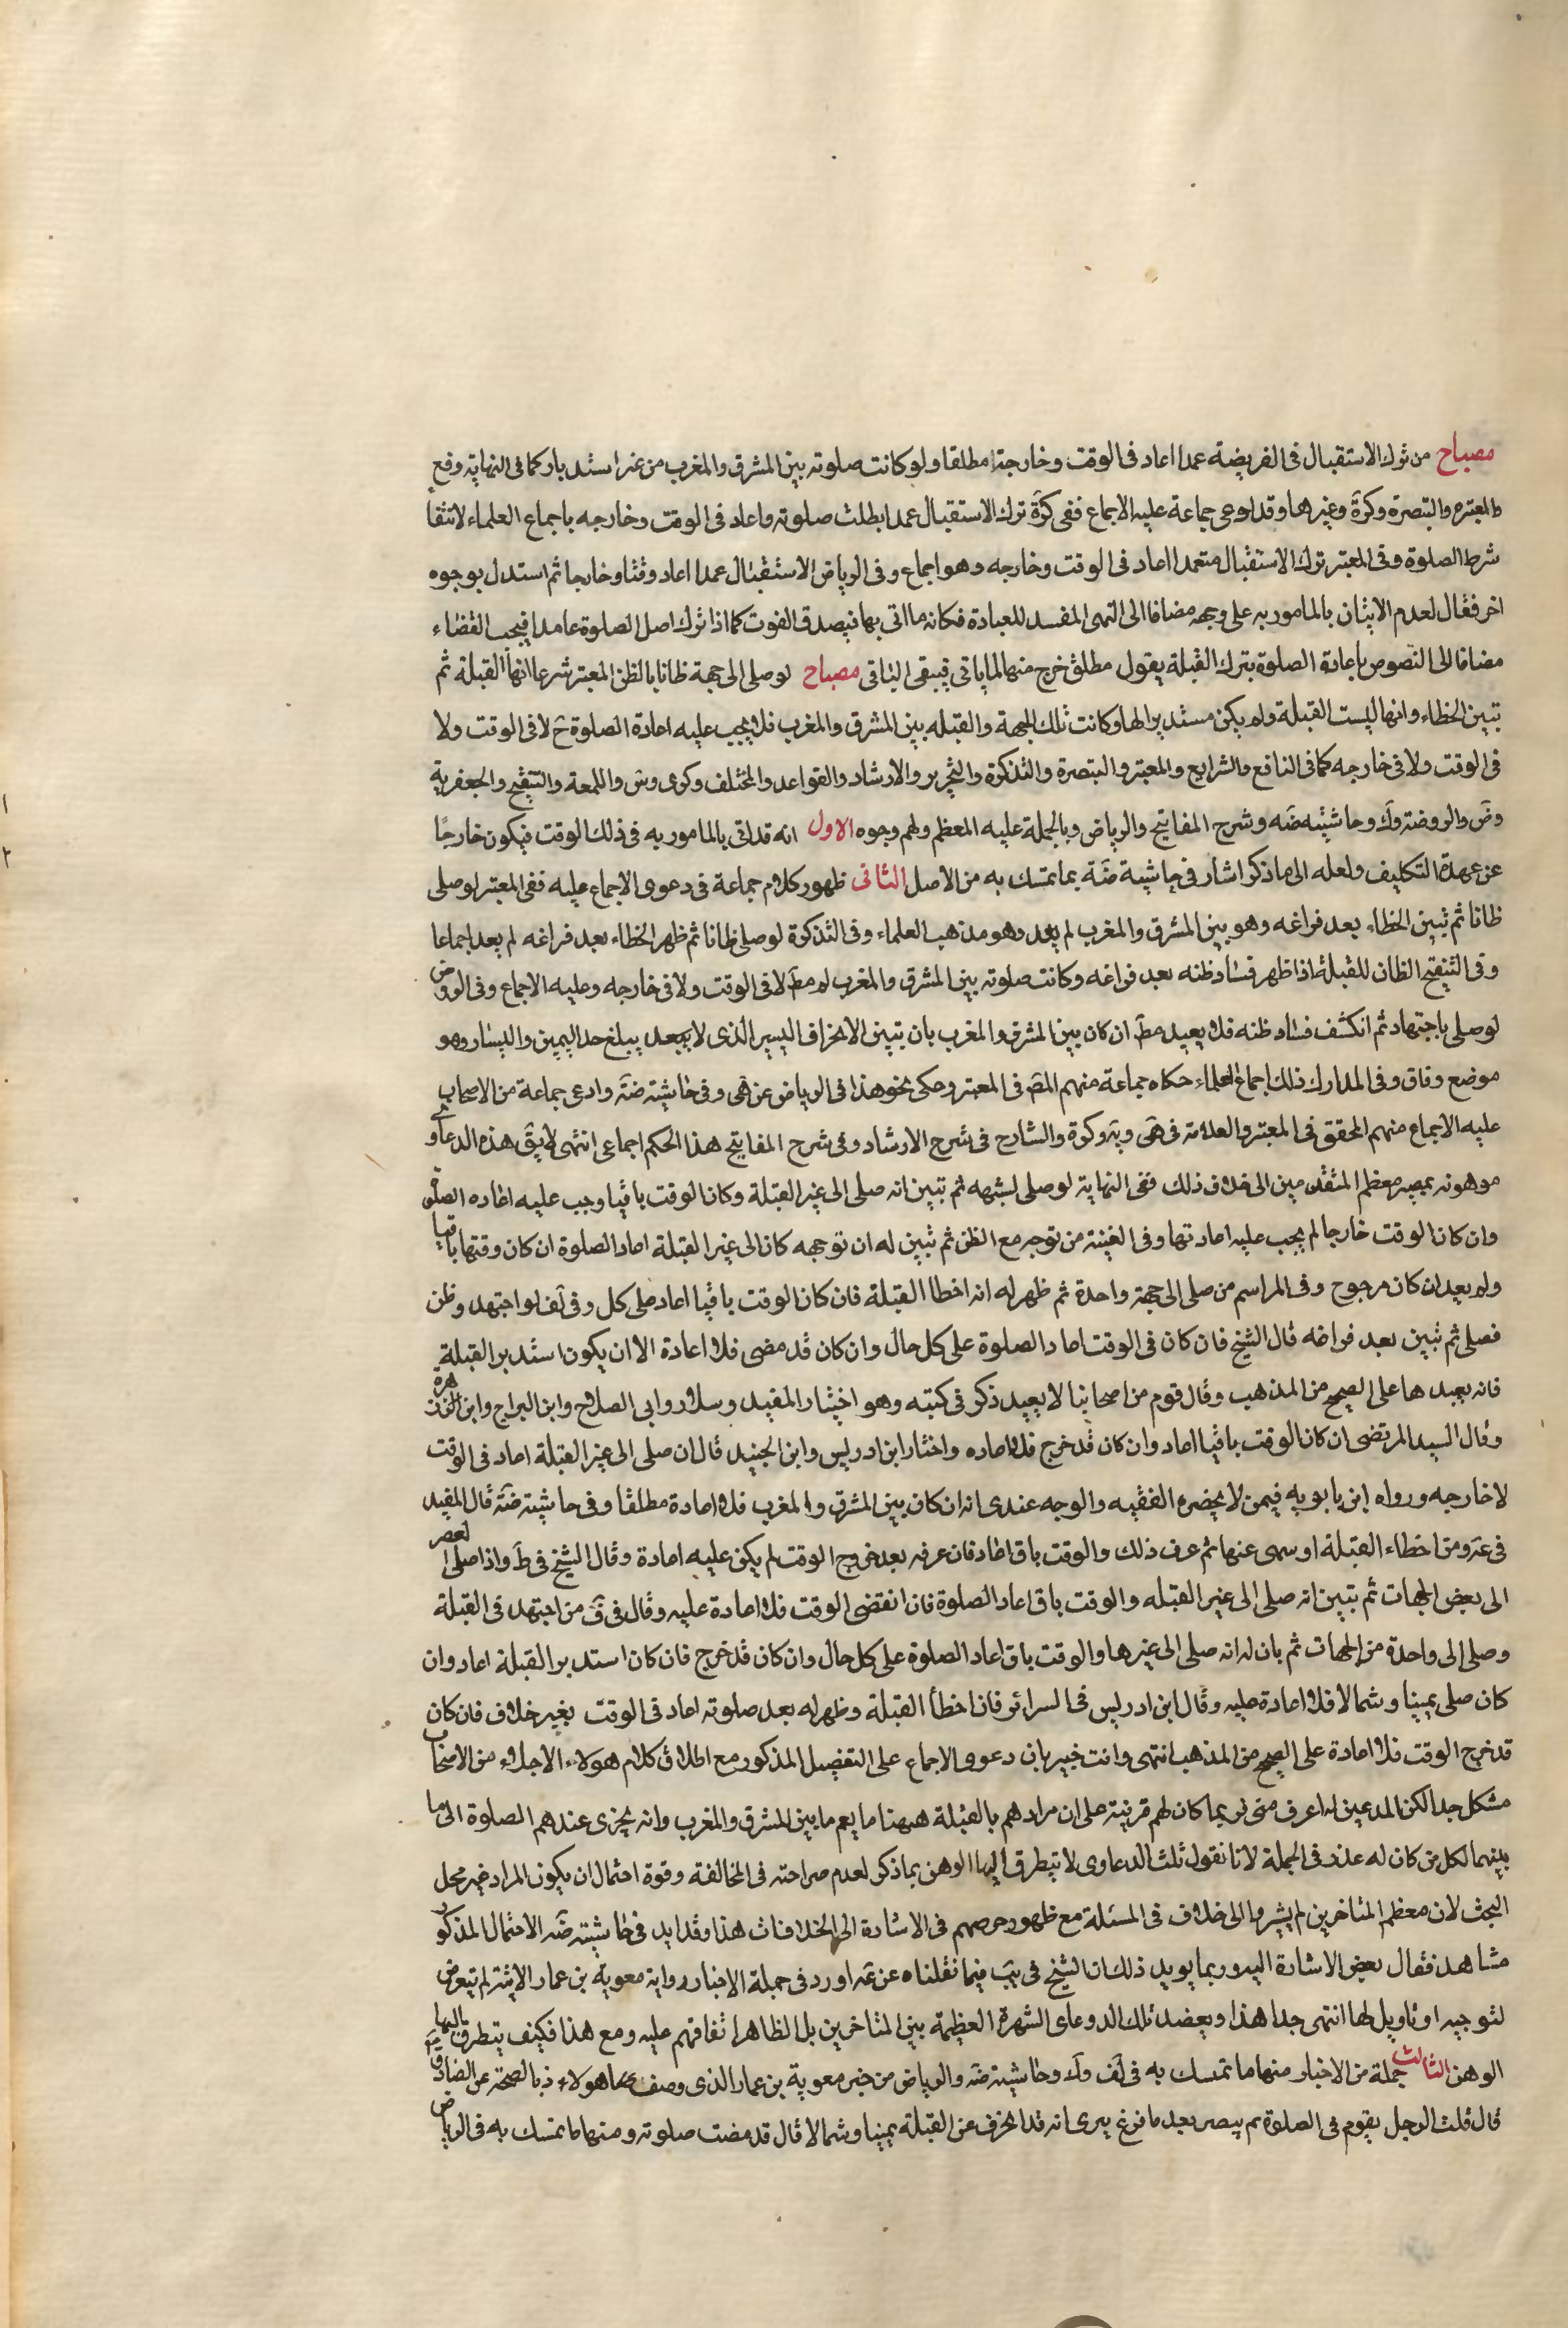 مصباح من ترك الاستقبال فى الفريضة عمدا اعاد فى الوقت وخارجة مطلقا ولو كانت صلوته بين المشرق والمغرب من غير استدبار كما فى النهاية وقع
والمعتبر والتبصرة وكرة وغيرها وقد ادعى جماعة عليه الاجماع ففى كرة ترك الاستقبال عمدا ابطلت صلوته واعاد فى الوقت وخارجه باجماع العلماء لانتفا
شرط الصلوة وفى المعتبر ترك الاستقبال متعمدا اعاد فى الوقت وخارجه وهو اجماع وفى الرياض الاستقبال عمدا اعاد وقتا وخارجا ثم استدل بوجوه
اخر فقال لعدم الاتيان بالمامور به على وجهه مضافا الى النهى المفسد للعبادة فكانه ما اتى بها فيصدق الفوت كما اذا ترك اصل الصلوة عامدا فيجب القضاء
مضافا الى النصوص باعادة الصلوة بترك القبلة بقول مطلق خرج منها لما ياتى فيبقى الباقى مصباح لو صلى الى جهة ظانا بالظن المعتبر شرعا انها القبلة ثم
تبين الخطاء وانها ليست القبلة ولم يكن مستدبرا لها وكانت تلك الجهة والقبله بين المشرق والمغرب فلا يجب عليه اعادة الصلوة ح لا فى الوقت ولا
فى الوقت ولا فى خارجه كما فى النافع والشرايع والمعتبر والتبصرة والتذكرة والتحرير والارشاد والقواعد والمختلف وكرى وس واللمعة والتنقيح والجعفرية
وض والروضة وك وحاشيته ضه وشرح المفاتيح والرياض وبالجملة عليه المعظم ولهم وجوه الاول انه قد اتى بالمامور به فى ذلك الوقت فيكون خارجا
عن عهدة التكليف ولعله الى ما ذكر اشار فى حاشية ضة بما تمسك به من الاصل الثانى ظهور كلام جماعة فى دعوى الاجماع عليه ففى المعتبر لو صلى
ظانا ثم تبين الخطاء بعد فراغه وهو بين المشرق والمغرب لم يعد وهو مذهب العلماء وفى التذكرة لو صلى ظانا ثم ظهر الخطاء بعد فراغه لم يعد اجماعا
وفى التنقيح الظان للقبلة اذا ظهر فساد ظنه بعد فراغه وكانت صلوته بين المشرق والمغرب لم مط لا فى الوقت ولا فى خارجه وعليه الاجماع وفى الروض
لو صلى باجتهاد ثم انكشف فساد ظنه فلا يعيد مط ان كان بين المشرق والمغرب بان تبين الانحراف اليسير الذى لا يبلغ حد اليمين واليسار وهو
موضع وفاق وفى المدارك ذلك اجماع العلماء حكاه جماعة منهم المص فى المعتبر وحكى نحو هذا فى الرياض عن هى وفى حاشيته ضة وادعى جماعة من الاصحاب
عليه الاجماع منهم المحقق فى المعتبر والعلامة فى هى وية وكرة والشارح فى شرح الارشاد وفى شرح المفاتيح هذا الحكم اجماعى انتهى لا يق هذه الدعاوى
موهونة بمصير معظم المتقدمين الى خلاف ذلك ففى النهاية لو صلى لشبهه ثم تبين انه صلى الى غير القبلة وكان الوقت باقيا وجب عليه اعاده الصلو
وان كان الوقت خارجا لم يجب عليه اعادتها وفى الغنية من توجه مع الظن ثم تبين له ان توجهه كان الى غير القبلة اعاد الصلوة ان كان وقتها باقيا
ولم يعد ان كان مرجوح وفى المراسم من صلى الى جهة واحدة ثم ظهر له انه اخطا القبلة فان كان الوقت باقيا اعاد على كل وفى لف لو اجتهد وظن
فصلى ثم تبين بعد فراغه قال الشيخ فان كان فى الوقت اعاد الصلوة على كل حال وان كان قد مضى فلا اعادة الا ان يكون استدبر القبلة
فانه يعيدها على الصحيح من المذهب وقال قوم من اصحابنا لا يعيد ذكر فى كتبه وهو اختيار المفيد وسلار وابى الصلاح وابن البراج وابن زهرة
وقال السيد المرتضى ان كان الوقت باقيا اعاد وان كان قد خرج فلا اعاده واختار ابن ادريس وابن الجنيد قال ان صلى الى غير القبلة اعاد فى الوقت
لا خارجه ورواه ابن بابويه فيمن لا يحضره الفقيه والوجه عندى انه ان كان بين المشرق والمغرب فلا اعادة مطلقا وفى حاشيته ضة قال المفيد
فى عة ومن اخطاء القبلة او سهى عنها ثم عرف ذلك والوقت باق اعاد فان عرفه بعد خروج الوقت لم يكن عليه اعادة وقال الشيخ فى ط واذا صلى
الى بعض الجهات ثم تبين انه صلى الى غير القبله والوقت باق اعاد الصلوة فان انقضى الوقت فلا اعادة عليه وقال فى ف من اجتهد فى القبلة
وصلى الى واحدة من الجهات ثم بان له انه صلى الى غيرها والوقت باق اعاد الصلوة على كل حال وان كان قد خرج فان كان استدبر القبلة اعاد وان
كان صلى يمينا وشمالا فلا اعادة عليه وقال ابن ادريس فى السرائر فان اخطأ القبلة وظهر له بعد صلوته اعاد فى الوقت بغير خلاف فان كان
قد خرج الوقت فلا اعادة على الصحيح من المذهب انتهى وانت خبير بان دعوى الاجماع على التفصيل المذكور مع اطلاق كلام هولاء الاجلاء من الاصحاب
مشكل جدا لكن المدعين له اعرف منى لربما كان لهم قرينة على ان مرادهم بالقبلة ههنا ما يعم ما بين المشرق والمغرب وانه يجزى عندهم الصلوة الى ما
بينهما لكل من كان له عذر فى الجملة لانا نقول تلك الدعاوى لا تيطرق اليها الوهن بما ذكر لعدم صراحته فى المخالفة وقوة احتمال ان يكون المراد غير محل
البحث لان معظم المتاخرين لم يشيروا الى خلاف فى المسئلة مع ظهور حرصهم فى الاشارة الى الخلافات هذا وقد ايد فى حاشيته ضه الاحتمال المذكور
مشاهد فقال بعض الاشارة اليه وربما يويد ذلك ان الشيخ فى يب فيما نقلناه عن عة اورد فى جملة الاخبار رواية معوية بن عمار الاتية لم تيعرض
لتوجيه او تاويل لها انتهى جدا هذا ويعضد تلك الدوعاى الشهرة العظيمة بين المتاخرين بل الظاهر اتفاقهم عليه ومع هذا فكيف يتطرق اليها
الوهن الثالث جملة من الاخبار منها ما تمسك به فى لف وك وحاشية ضه والرياض من خبر معوية بن عمار الذى وصف هولاء ذ بالصحة عن الصادق
قال قلت الرجل يقوم فى الصلوة ثم يبصر بعد ما فرغ يرى انه قد انحرف عن القبلة يمينا وشمالا قال قد مضت صلوته ومنها ما تمسك به فى الرياض